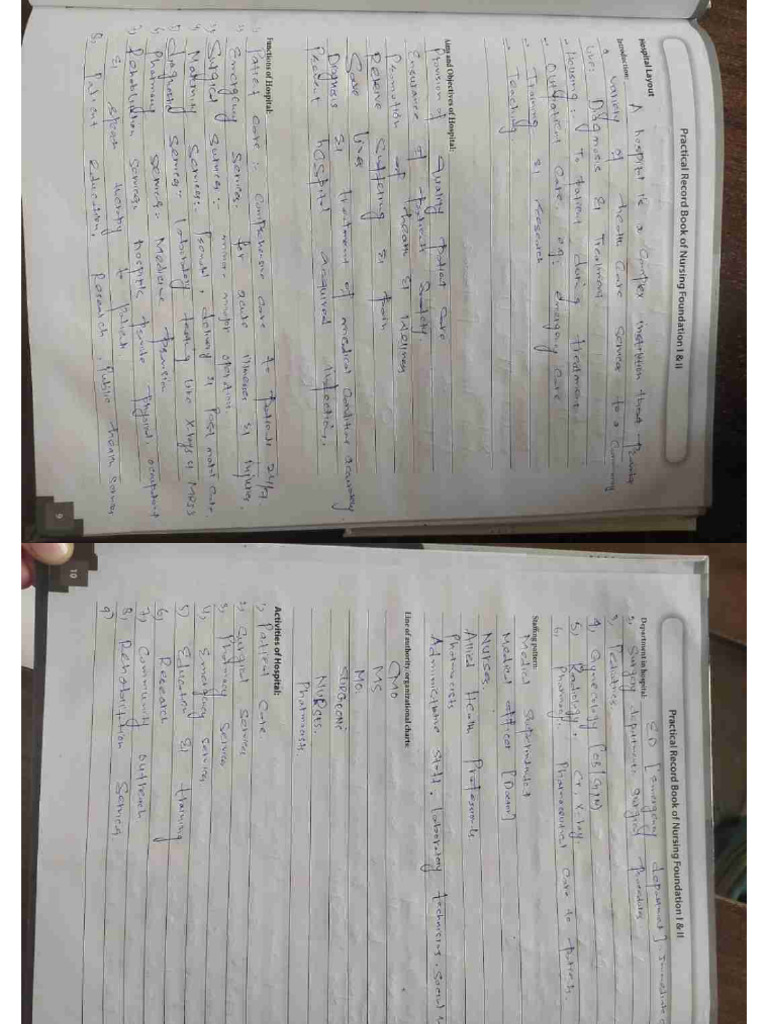 Practical Record Book of Nursing Foundation I & II
Hospital Layout
Introduction: A hospital is a complex institution that
a variety of health care services to a community
like: Diagnosis & Treatment
- Housing: to patient during treatment
- Outpatient Care eg: emergency care
- Training & research
- Teaching
Aims and Objectives of Hospital:
Provision of quality patient care
Ensurance of patient safety
Promotion of health & wellness
Relieve suffering & pain
Save lives
Diagnosis & treatment of medical condition accurately
Prevent hospital acquired infections.
Functions of Hospital:
1) Patient care :- comprehensive care to patients 24/7.
2) Emergency services: for acute illnesses & injuries.
3) Surgical services :- minor major operation
4) Maternity services:- delivery & Post natal care.
5) Diagnostic services:- laboratory testing like x-rays & MRIs
6) Pharmacy services- Medicine
7) Rehabilitation services- hospitals provide physical, occupational
& speech therapy to patient
8) Patient education, Research, Public health services
9
10
Practical Record Book of Nursing Foundation I & II
Department in hospital: ED [emergency department]. immediate
2, Surgery department: surgical
3, Pediatrics
4, Gynecology [OB/GYN]
5, Radiology, CT, X-ray.
6, Pharmacy: Pharmaceutical care to patients.
Staffing pattern:
Medical
Medical officer [Doctor]
Nurses.
Allied Health Professionals
Pharmacists
Administrative staff, laboratory technicians, social
Line of authority/organizational charts:
CMO
MS
MO.
NURSES.
Pharmacists.
Activities of Hospital:
1, Patient Care
2, Surgical services
3, Pharmacy services
4, Emergency services
5) Education & training
6, Research
7, Community outreach
8, Rehabilitation Services
9)